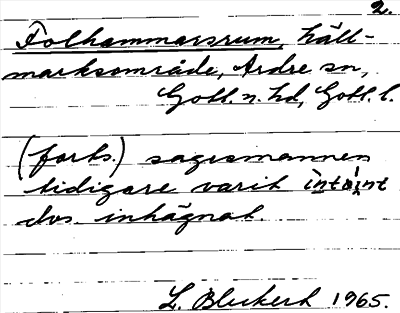 2.
Folhammarsrum, häll-
marksområde, Ardre sn,
Gotl. n. hd, Gotl. l.
(forts.) sagesmannen
tidigare varit intäint
dvs. inhägnat.
L. Bleckert 1965.